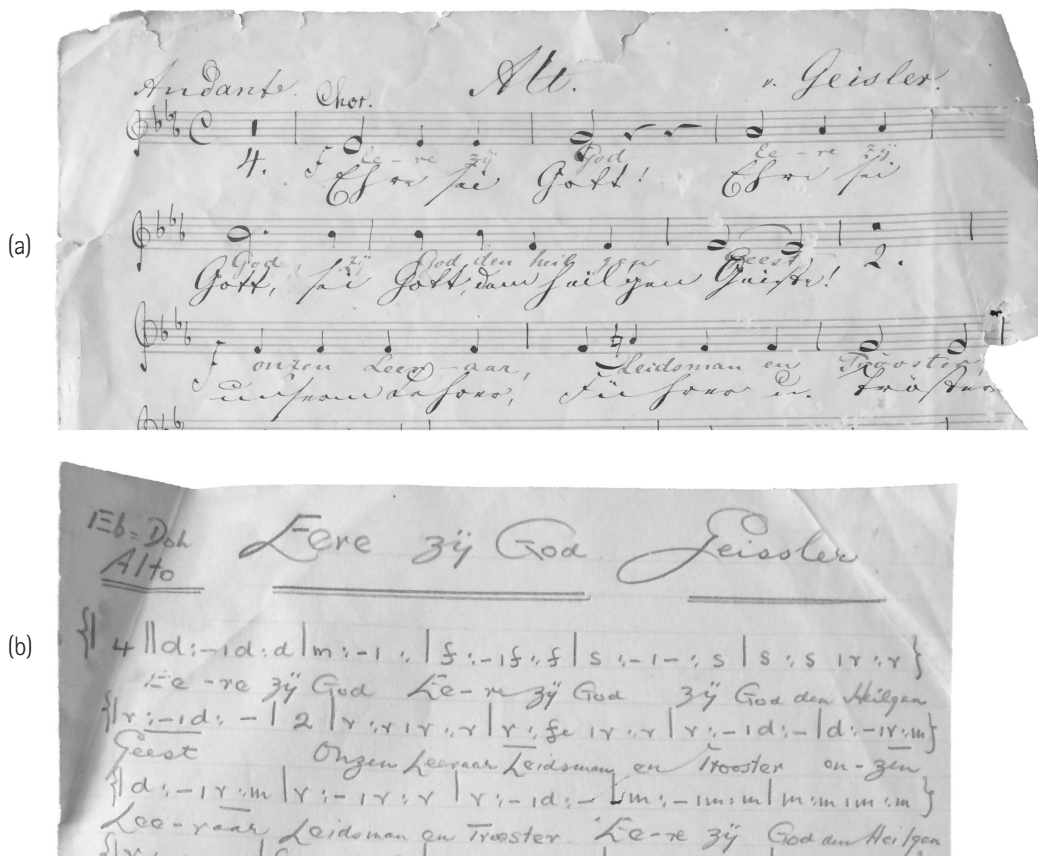 (a)
Andante. Chor. Alt. v. Geisler.
4. f Ee-re zÿ God Ee-re zÿ
Ehre sei Gott! Ehre sei
God, zÿ God, den heil gen Geest,
Gott, sei Gott, dem heil gen Geiste! 2.
f onzen Leer-aar, Leidsman en Trooster,
unserm Lehrer, Führer u. Tröster
(b)
Eb=Doh
Alto
Eere zÿ God Geissler
{| 4 ||d:-|d:d|m:-| :|f:-|f:f|s:-|-:s|s:s|r:r}
Ee-re zÿ God Ee-re zÿ God zÿ God den Heilgen
{|r:-|d:-| 2 |r:r|r:r|r:fe|r:r|r:-|d:-|d:-|r:m}
Geest Onzen Leeraar Leidsman en Trooster on-zen
{|d:-|r:m|r:-|r:r|r:-|d:-|m:-|m:m|m:m|m:m}
Lee-raar Leidsman en Trooster Ee-re zÿ God den Heilgen